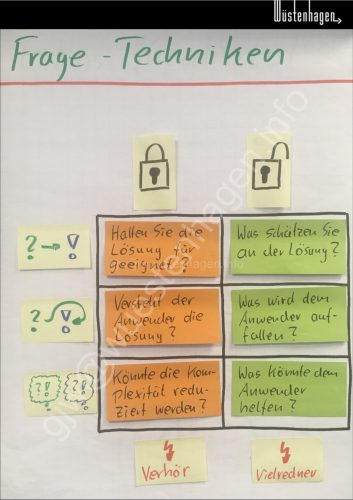 Wüstenhagen
Frage-Techniken
? → !
Halten Sie die
Lösung für
geeignet?
Was schätzen Sie
an der Lösung?
? !
Versteht der
Anwender die
Lösung?
Was wird dem
Anwender auf-
fallen?
?! ?!
Könnte die Kom-
plexität redu-
ziert werden?
Was könnte dem
Anwender
helfen?
Verhör
Vielredner